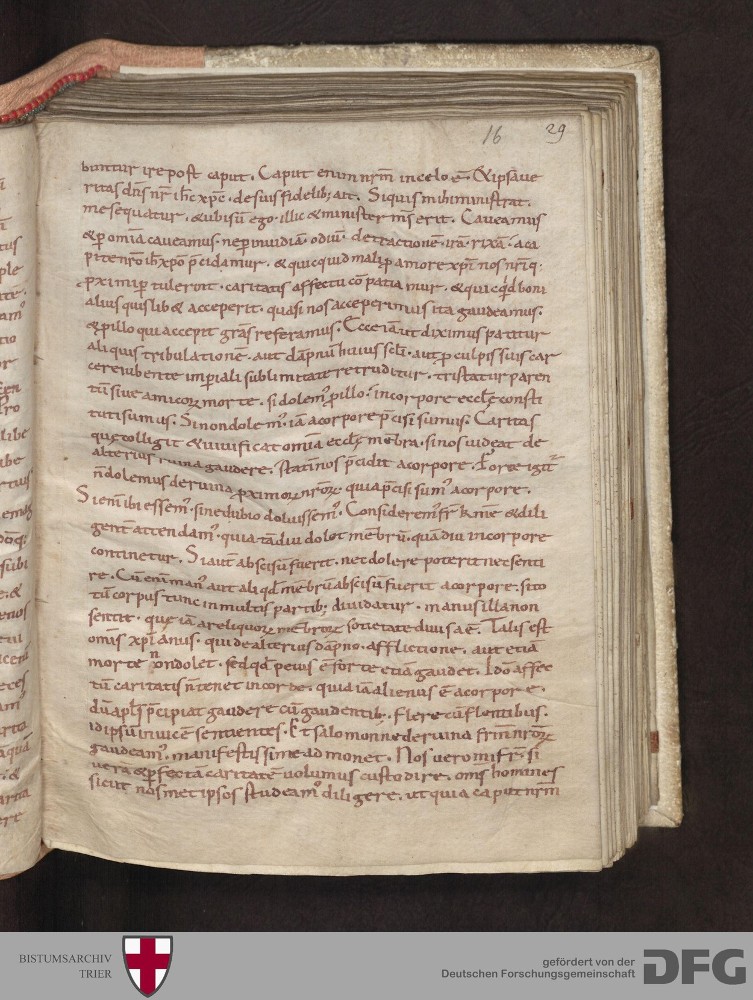 16 29
buntur ire post caput. Caput enim nr̄m in celo ē. & ipsa ue
ritas dn̄s nr̄ ih̄c xp̄c. de suis fidelib; ait. Siquis mihi ministrat.
me sequatur. & ubi sū ego. illic & minister ms erit. Caueamus
& ꝑ omīa caueamus. ne ꝑ inuidiā. odiū. detractionē. irā. rixā. a ca
pite nr̄o ih̄u xp̄o p̄cidamur. & quicquid mali ꝑ amore xp̄i nos nr̄iq;
ꝓximi ꝑtulerint. caritatis affectu cōpatiamur. & quicq̇d boni
alius quislib& acceperit. quasi nos acceperimus ita gaudeamus.
& ꝓ illo qui accepit grās referamus. Ecce iā ut diximus patitur
aliquis tribulationē. aut dāpnū huius sc̄li. aut ꝓ culpis suis car
cere iubente imperiali sublimitate retruditur. tristatur paren
tū siue amicoꝝ morte. si dolemꝰ ꝓ illo. in corpore eccl̄ę consti
tuti sumus. Si non dolemꝰ. iā a corpore p̄cisi sumus. Caritas
que colligit & uiuificat omīa eccl̄ę mēbra. si nos uideat de
alterius ruina gaudere. statī nos p̄cidit a corpore. Forte igit̄
n̄ dolemus de ruina ꝓximoꝝ nr̄oꝝ. quia p̄cisi sumꝰ a corpore.
Si enī ibi essemꝰ. sine dubio doluissemꝰ. Consideremꝰ fr̄ k̄mē & dili
gent̄ attendamꝰ. quia tādiu dol& mēbrū. quādiu in corpore
continetur. Si aut̄ abscisū fuerit. nec dolere poterit nec senti
re. Cū enī manꝰ aut aliqd̄ mēbrū abscisū fuerit a corpore. si to
tū corpus tunc in multis partib; diuidatur. manus illa non
sentit. que iā a reliquoꝝ mēbroꝝ societate diuisa ē. Talis est
om̄s xp̄ianus. qui de alterius dāpno. afflictione. aut etiā
morte non dolet. sed qd̄ peius ē forte etiā gaudet. Ido affec
tū caritatis n̄ tenet in corde. quia iā alienus ē a corpore.
dū apl̄s p̄cipiat gaudere cū gaudentib;. flere cū flentibus.
id ipsū inuicē sentientes. Et salomon ne de ruina fr̄m̄ nr̄oꝝ
gaudeamꝰ. manifestissime admonet. Nos uero mi fr̄s. si
uera & ꝑfectā caritatē uolumus custodire. om̄s homines
sicut nosmet ipsos studeamꝰ diligere. ut quia caput nr̄m
BISTUMSARCHIV
TRIER
gefördert von der
Deutschen Forschungsgemeinschaft
DFG